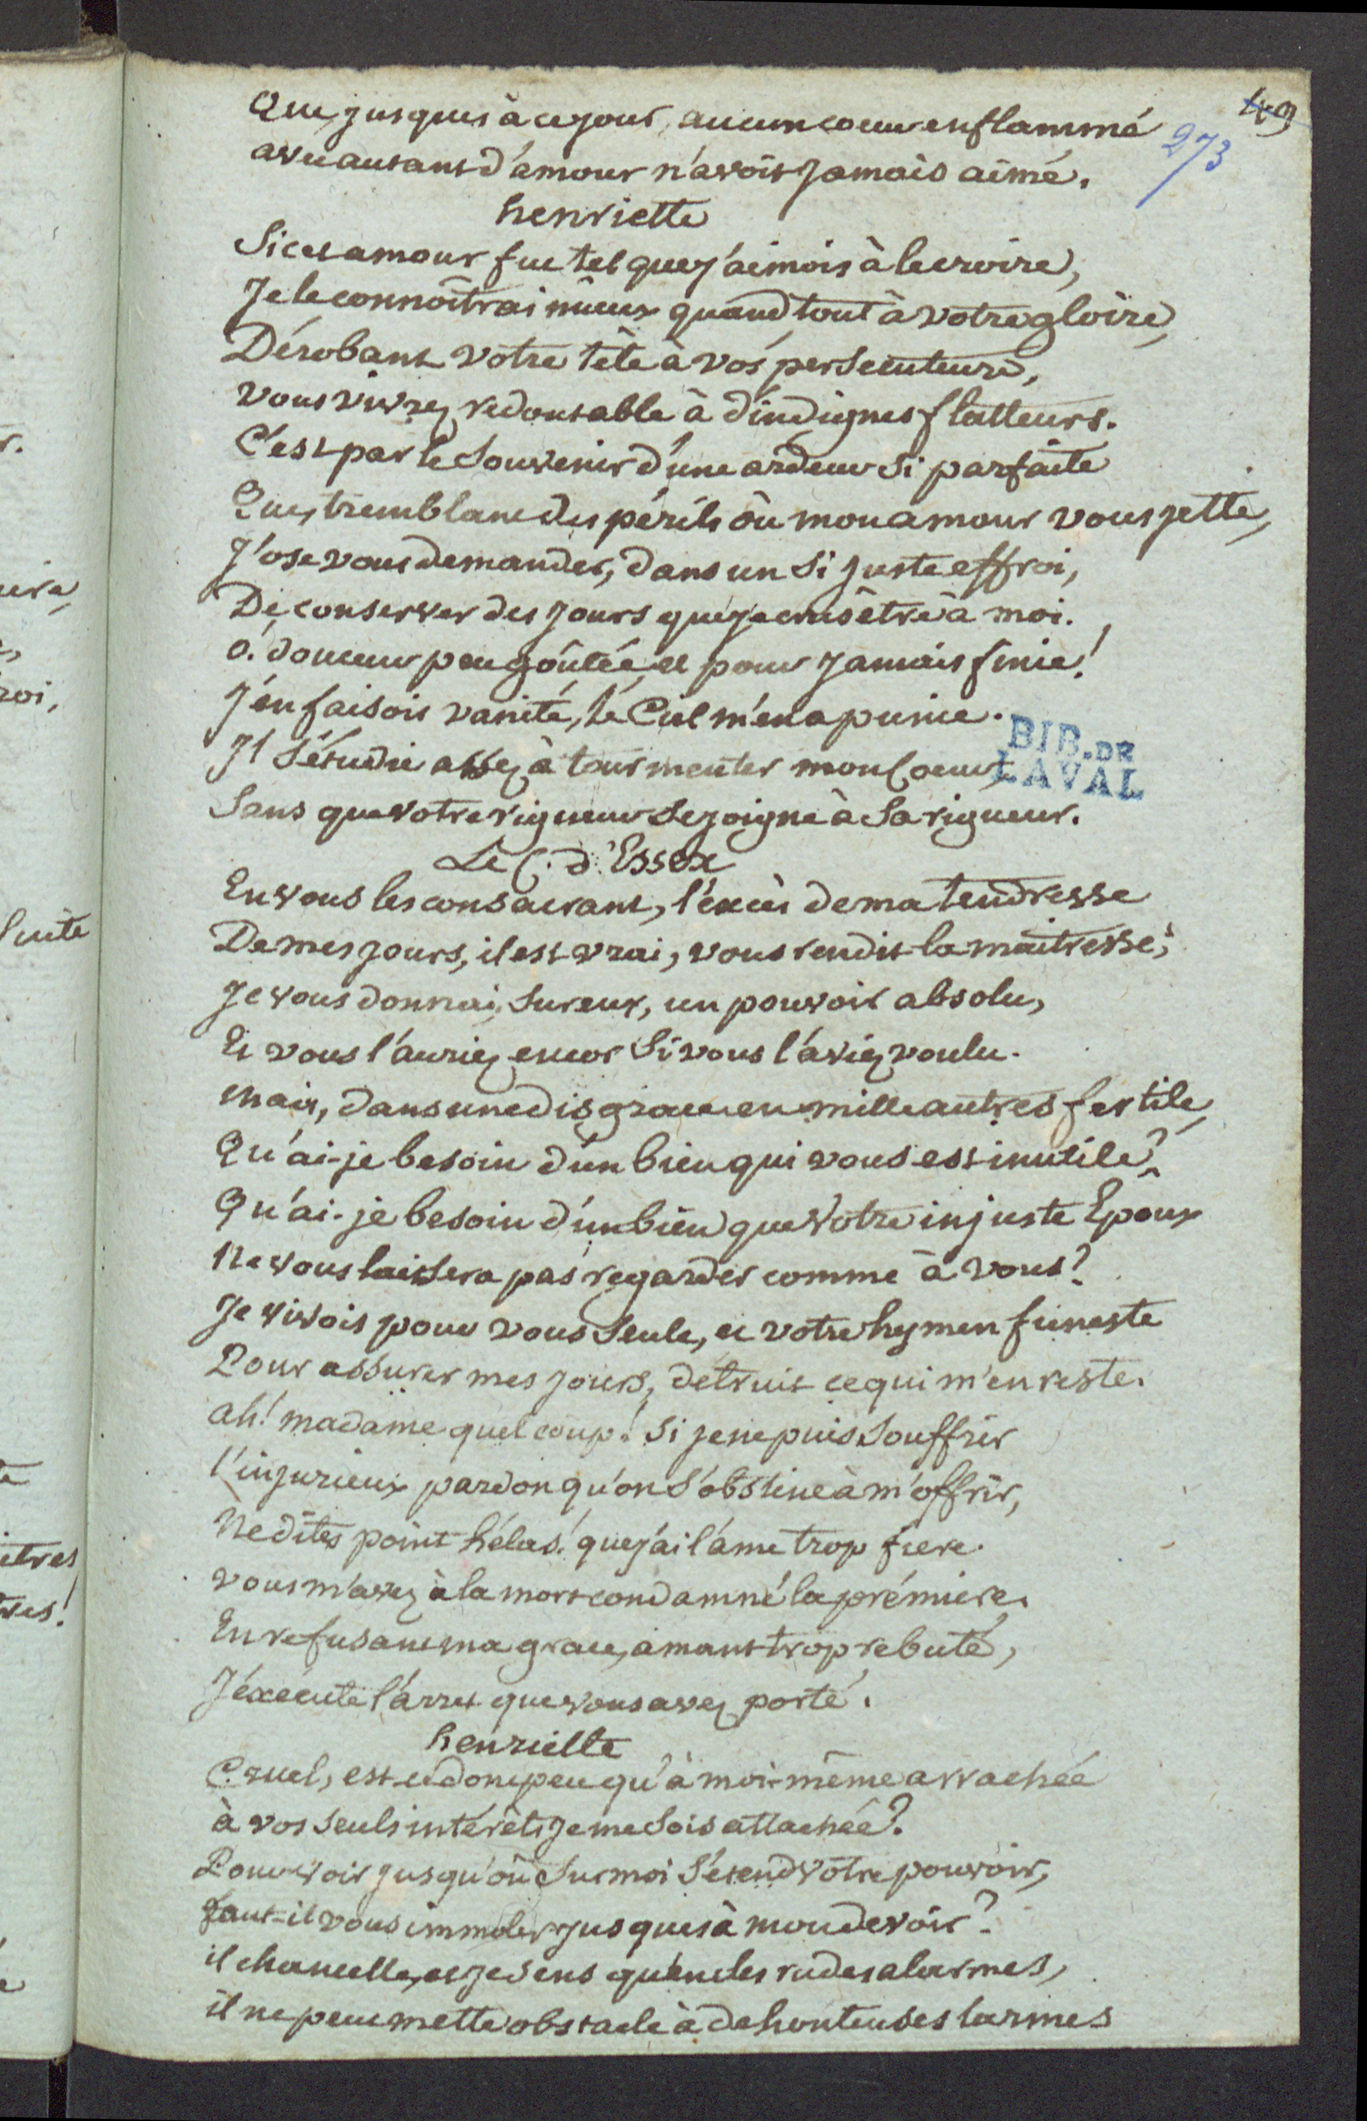 489
273
Que jusques à ce jour, aucun coeur enflammé
avec autant d'amour n'avoit jamais aimé.
henriette
Si cet amour fut tel que j'aimois à le croire,
Je le connoîtrai mieux quand tout à votre gloire,
Dérobant votre tête à vos persecuteurs,
vous vivrez redoutable à d'indignes flatteurs.
C'est par le Souvenir d'une ardeur Si parfaite
Que, tremblant des périls où mon amour vous jette,
J'ose vous demander, dans un Si juste effroi,
De conserver des jours que je crus être à moi.
ô! douceur peu goûtée, et pour jamais finie!
J'en faisois vanité, le Ciel m'en a punie.
Il S'étudie assez à tourmenter mon Coeur,
Sans que votre rigueur Se joigne à Sa rigueur.
BIB. DE
LAVAL
Le C. d'Essex
En vous les consacrant, l'excès de ma tendresse
De mes jours, il est vrai, vous rendit la maitresse;
Je vous donnai, Sur eux, un pouvoir absolu,
Et vous l'auriez encor Si vous l'aviez voulu.
mais, dans une disgrace en mille autres fertile,
Qu'ai-je besoin d'un bien qui vous est inutile?
Qu'ai-je besoin d'un bien que votre injuste Epoux
Ne vous laissera pas regarder comme à vous?
Je vivois pour vous Seule, et votre hymen funeste
Pour assurer mes jours, détruit ce qui m'en reste.
ah! madame quel coup! Si je ne puis Souffrir
l'injurieux pardon qu'on S'obstine à m'offrir,
Ne dites point hélas! que j'ai l'âme trop fiere.
vous m'avez à la mort condamné la prémiere.
En refusant ma grace, amant trop rebuté,
J'éxécute l'arret que vous avez porté.
henriette
Cruel, est-ce donc peu qu'à moi-même arrachée
à vos seuls intérêts je me Sois attachée?
Pour voir jusqu'où Sur moi S'étend votre pouvoir,
faut-il vous immoler jusques à mon devoir?
il chancelle, et je Sens qu'en des rudes alarmes,
il ne peut mettre obstacle à de honteuses larmes